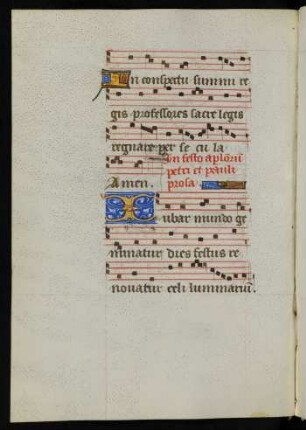 In conspectu summi re
gis professores sacre legis
regnare per se cu la
Amen.
In festo aplorū
petri et pauli
prosa.
Iubar mundo ge
minatur dies festus re
novatur celi luminariū.